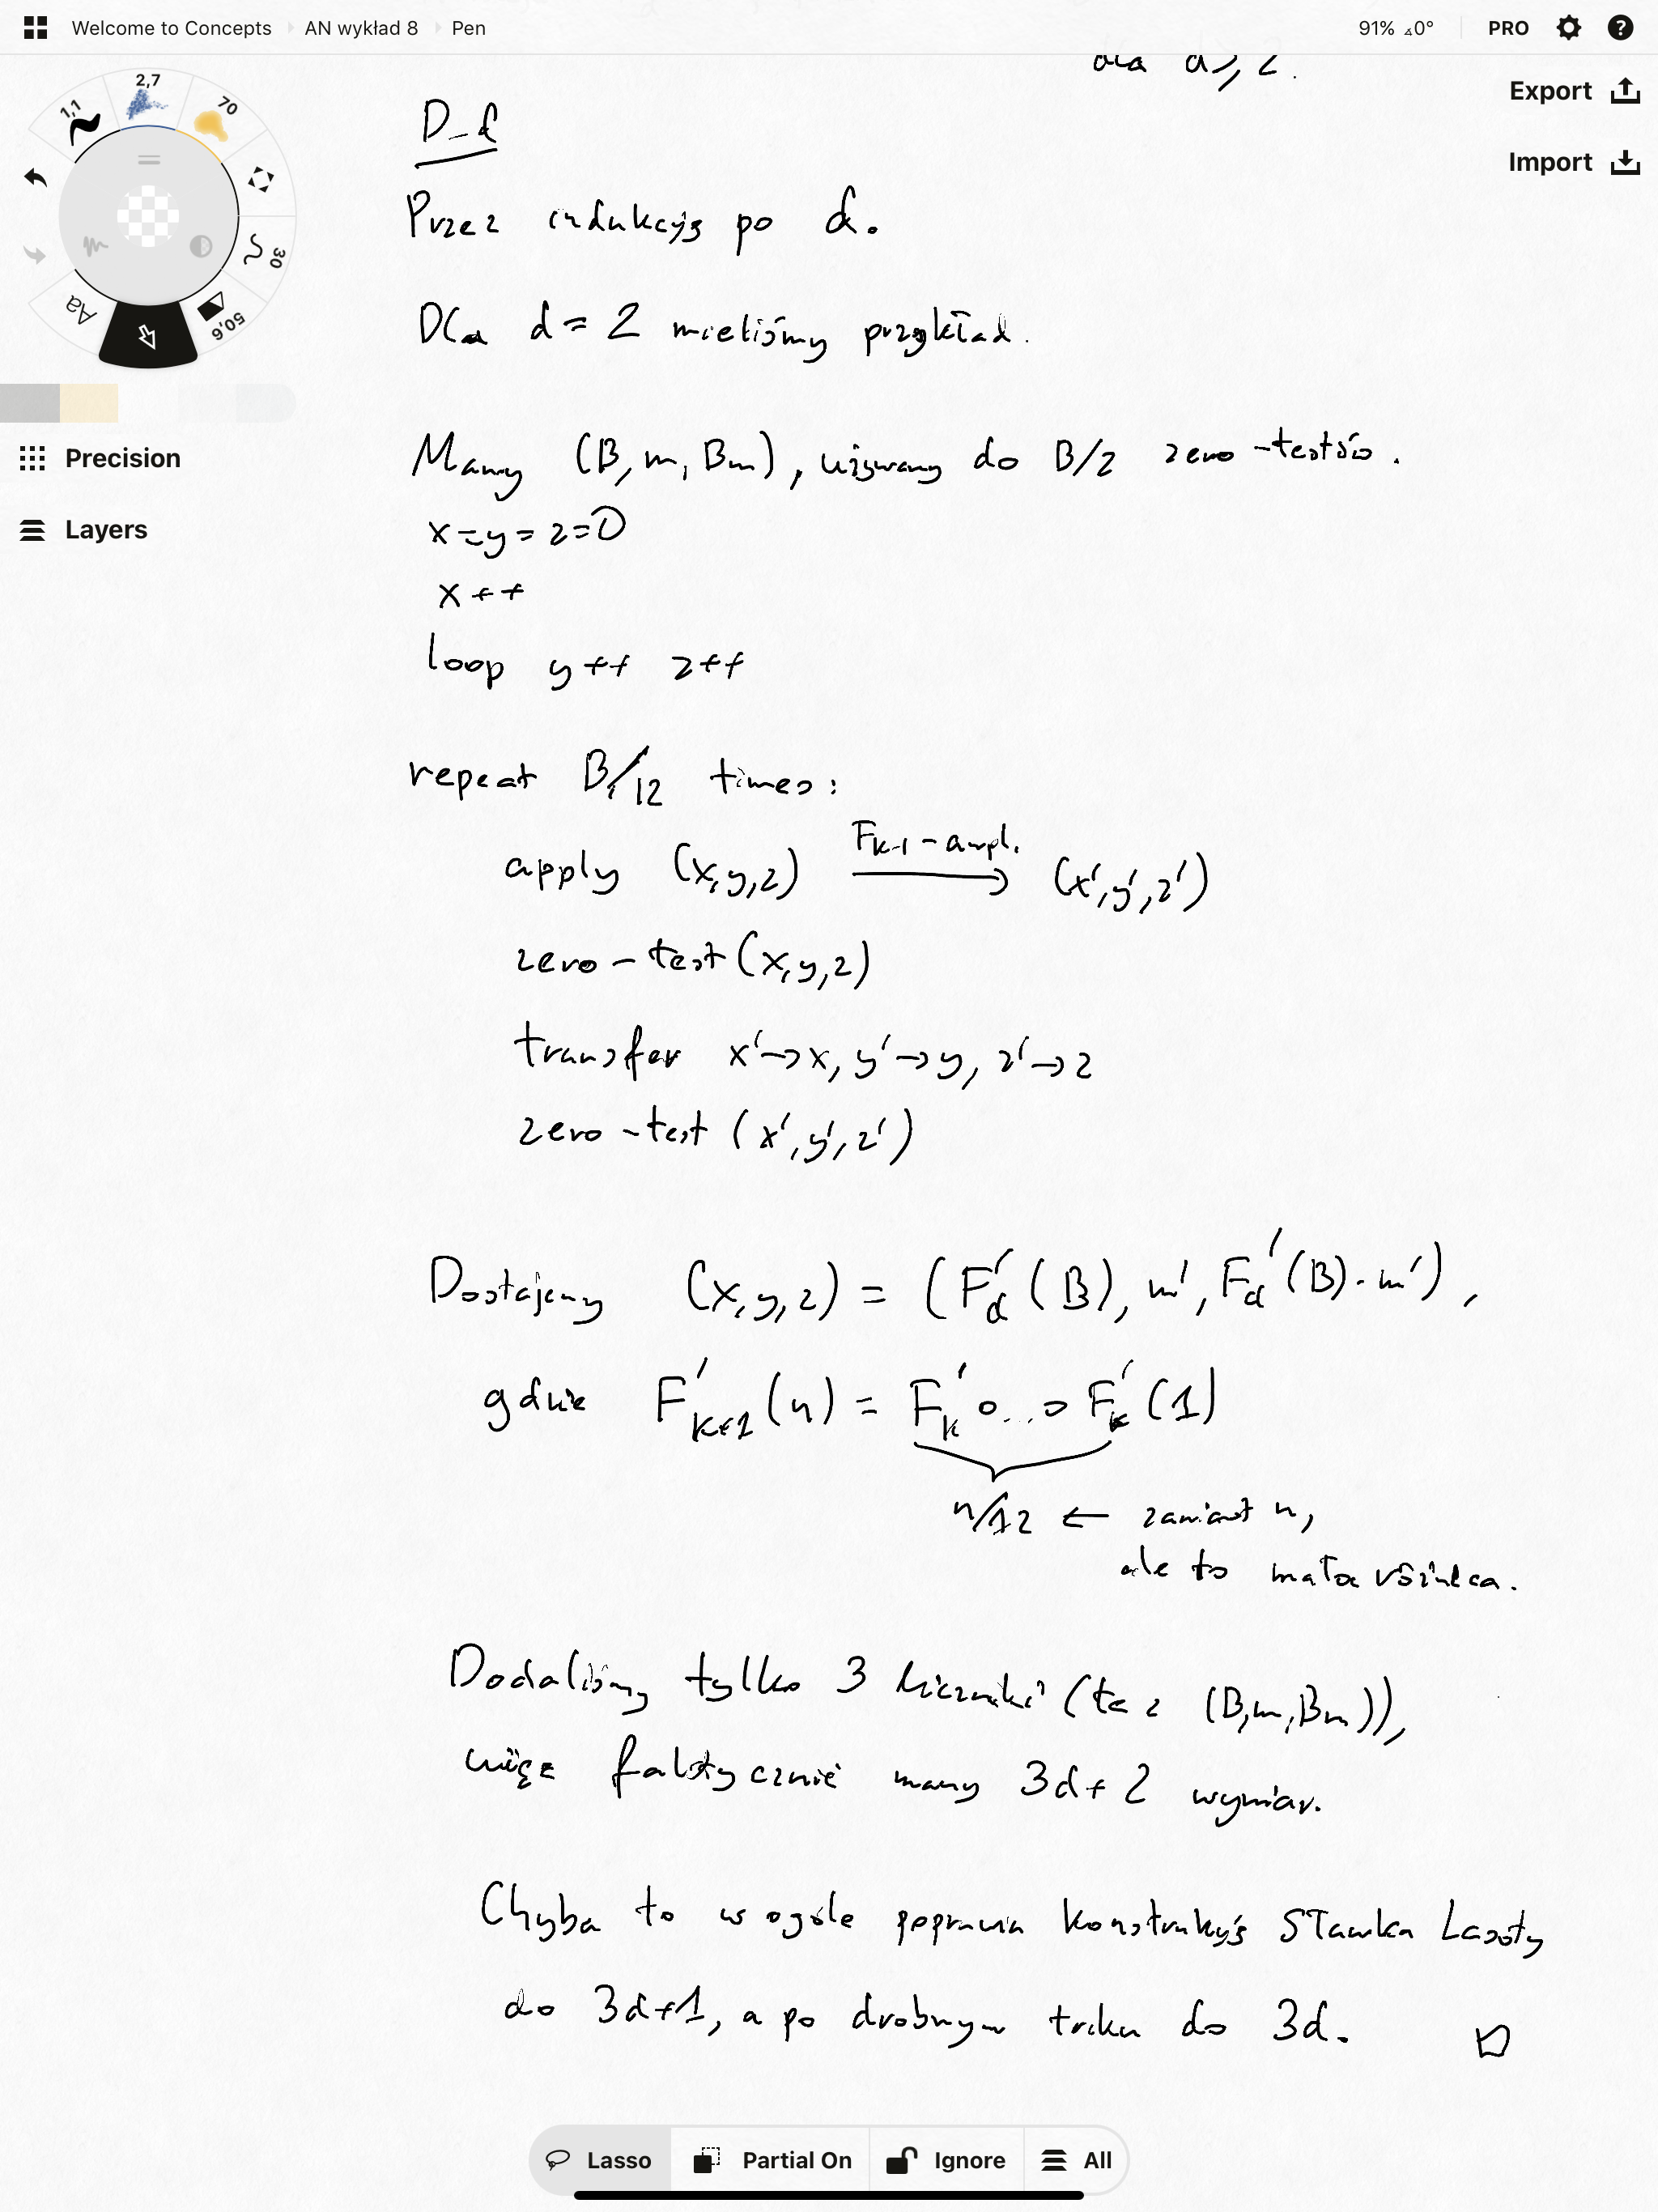 Welcome to Concepts AN wykład 8 Pen 91% 0° PRO
dla d ≥ 2.
Export
Import
2,7
1,1
70
30
50,6
Aa
Precision
Layers
D-d
Przez indukcję po d.
Dla d = 2 mieliśmy przykład.
Mamy (B, m, Bm), używamy do B/2 zero-testów.
x = y = z = 0
x++
loop y++ z++
repeat B/12 times:
apply (x,y,z) F_{k-1}-ampl. → (x',y',z')
zero-test (x,y,z)
transfer x'→x, y'→y, z'→z
zero-test (x',y',z')
Dostajemy (x,y,z) = (F'_d(B), m', F'_d(B)·m'),
gdzie F'_{k+1}(n) = F'_k ∘...∘ F'_k(1)
n/12 ← zamiast n,
ale to mała różnica.
Dodaliśmy tylko 3 liczniki (te z (B,m,Bm)),
więc faktycznie mamy 3d+2 wymiar.
Chyba to w ogóle poprawia konstrukcję Sławka Lasoty
do 3d+1, a po drobnym triku do 3d. □
Lasso Partial On Ignore All